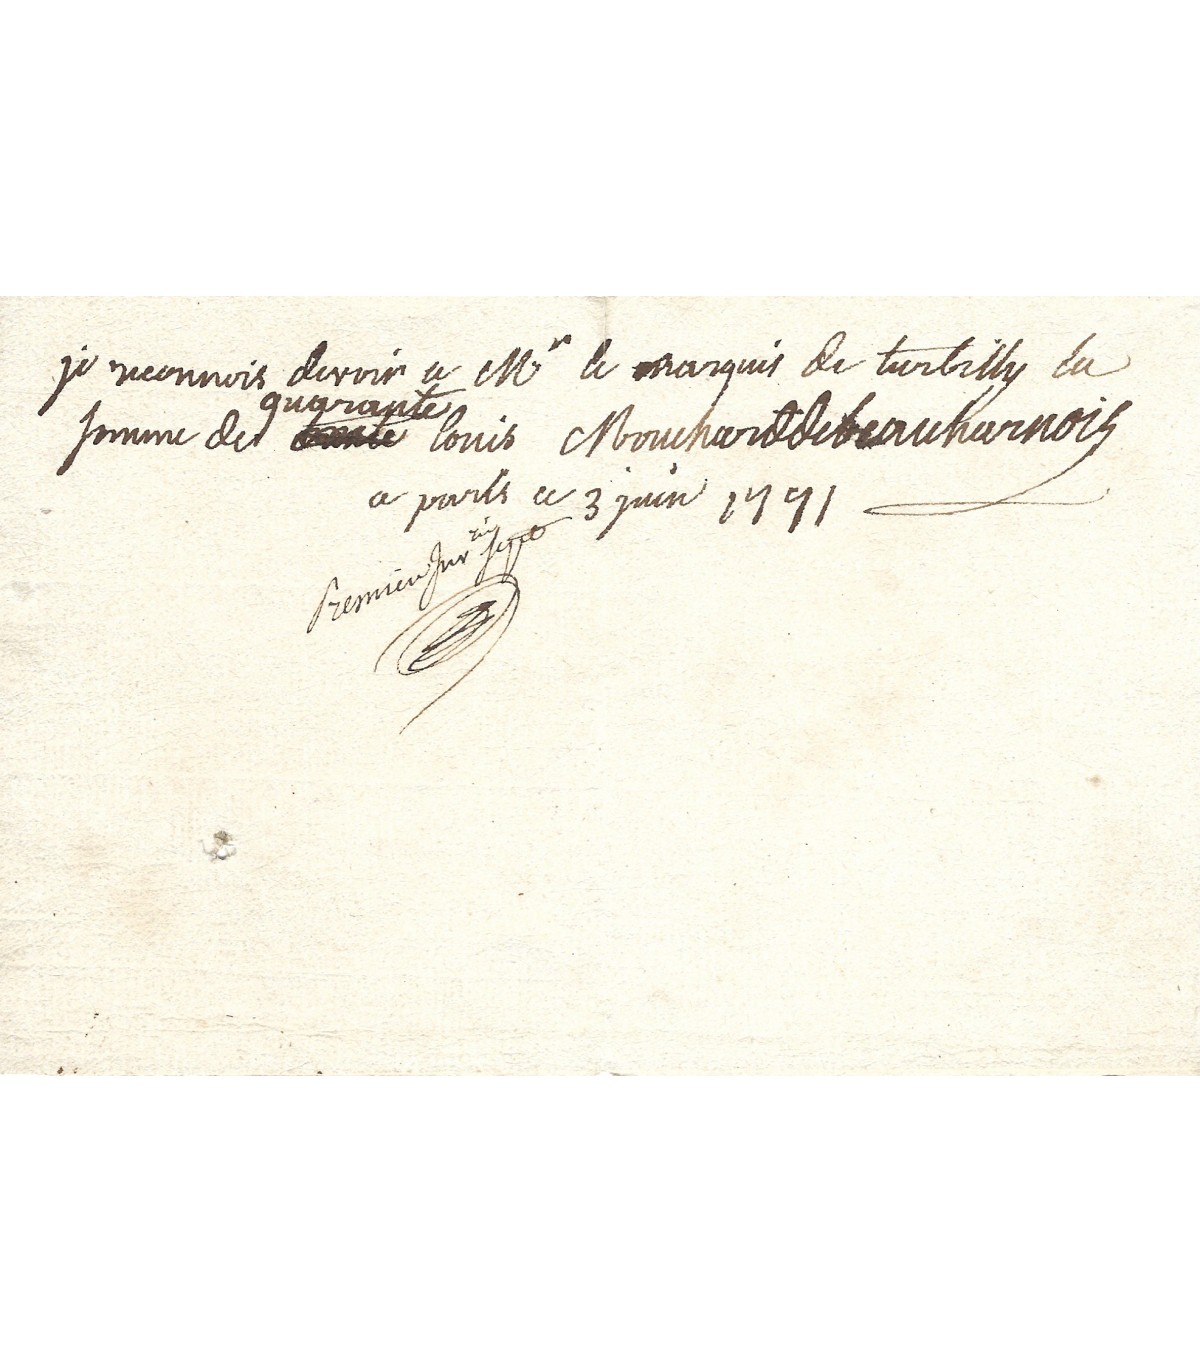 je reconnois devoir a Mr le marquis de turbilly la
quarante
somme de louis Mouchard de beauharnois
a paris ce 3 juin 1791
Premier